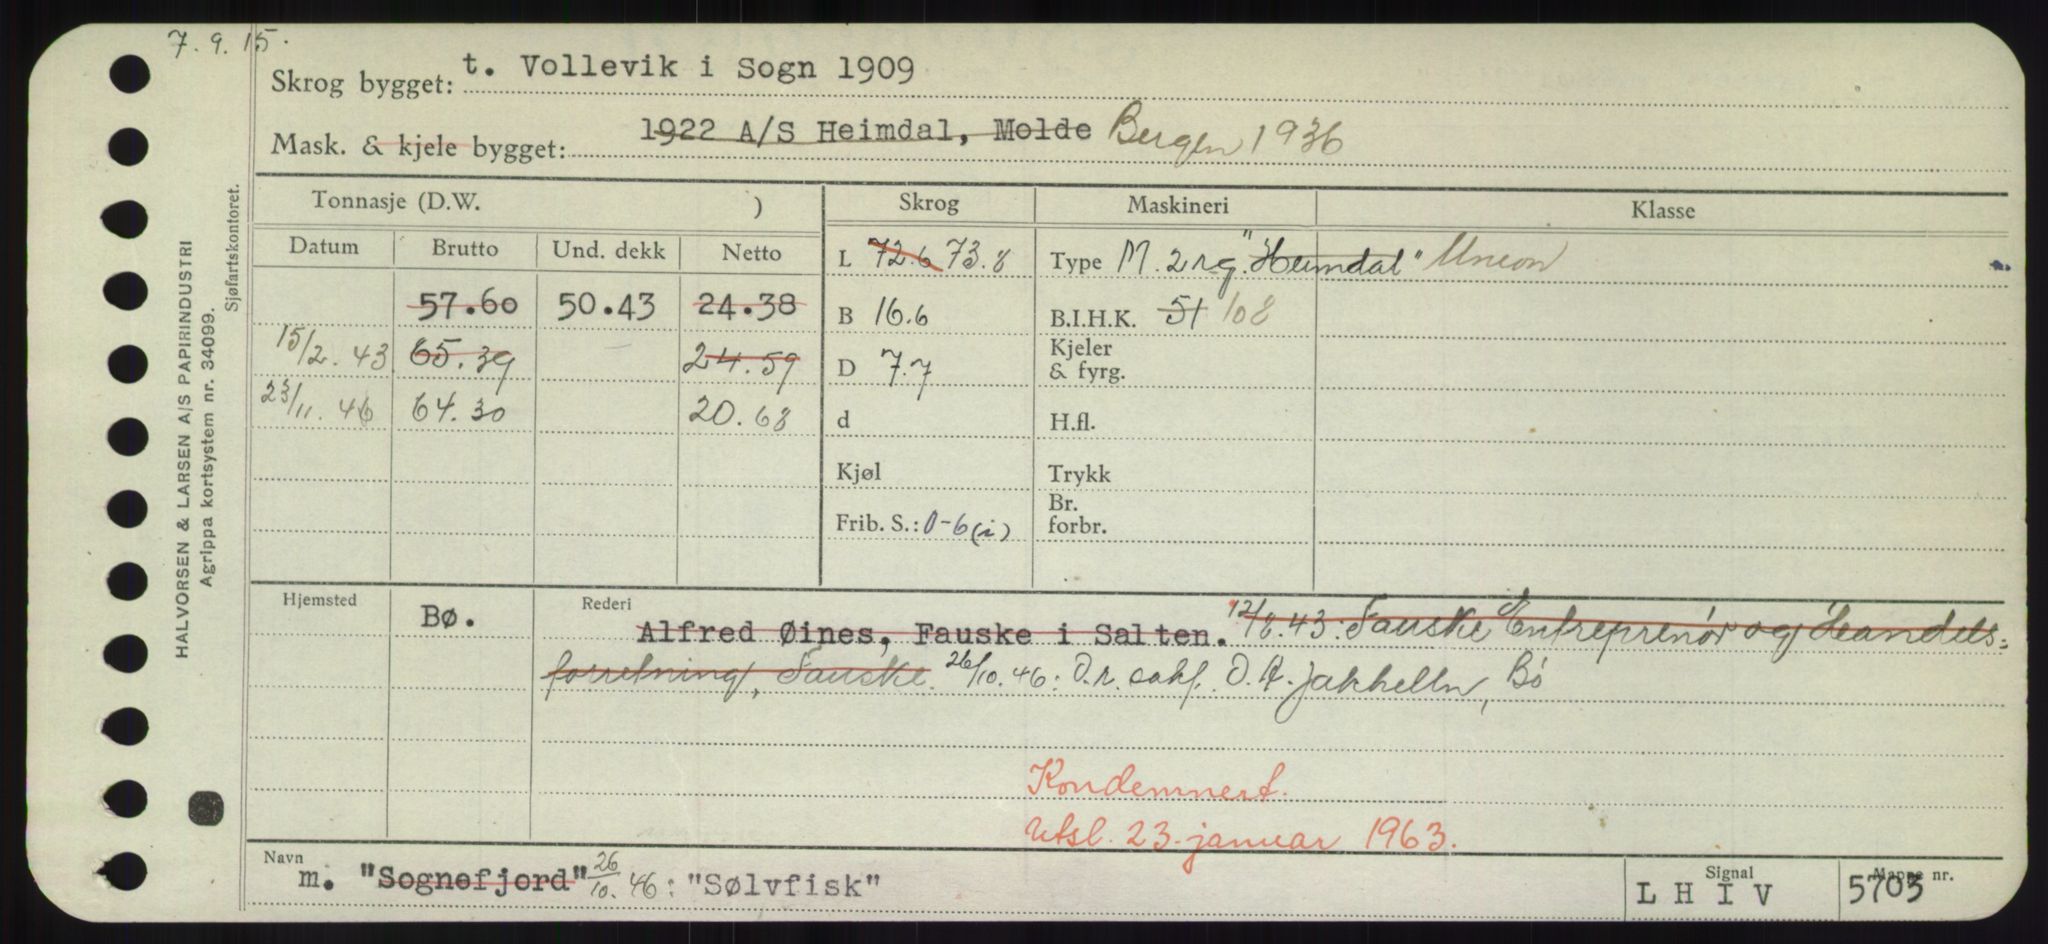 7.9.15.
Skrog bygget: t. Vollevik i Sogn 1909
Mask. & kjele bygget: 1922 A/S Heimdal, Molde Bergen 1936
HALVORSEN & LARSEN A/S PAPIRINDUSTRI
Agrippa kortsystem nr. 34099.
Sjøfartskontoret.
Tonnasje (D.W. ) Skrog Maskineri Klasse
Datum Brutto Und. dekk Netto L 72.6 73.8 Type M. 2 "Heimdal" Union
57.60 50.43 24.38 B 16.6 B.I.H.K. 51 108
15/2. 43 65.39 24.59 D 7.7 Kjeler & fyrg.
23/11. 46 64.30 20.68 d H.fl.
Kjøl Trykk
Frib. S.: 0-6 (i) Br. forbr.
Hjemsted Bø. Rederi Alfred Øines, Fauske i Salten. 12/8.43: Fauske Entreprenør og Handels-
forretning, Fauske. 26/10.46: D.r. O. A. Jakhelln, Bø
Kondemnert.
Utsl. 23. januar 1963.
Navn m. "Sognefjord" 26/10.46: "Sølvfisk" Signal L H I V Mappe nr. 5703